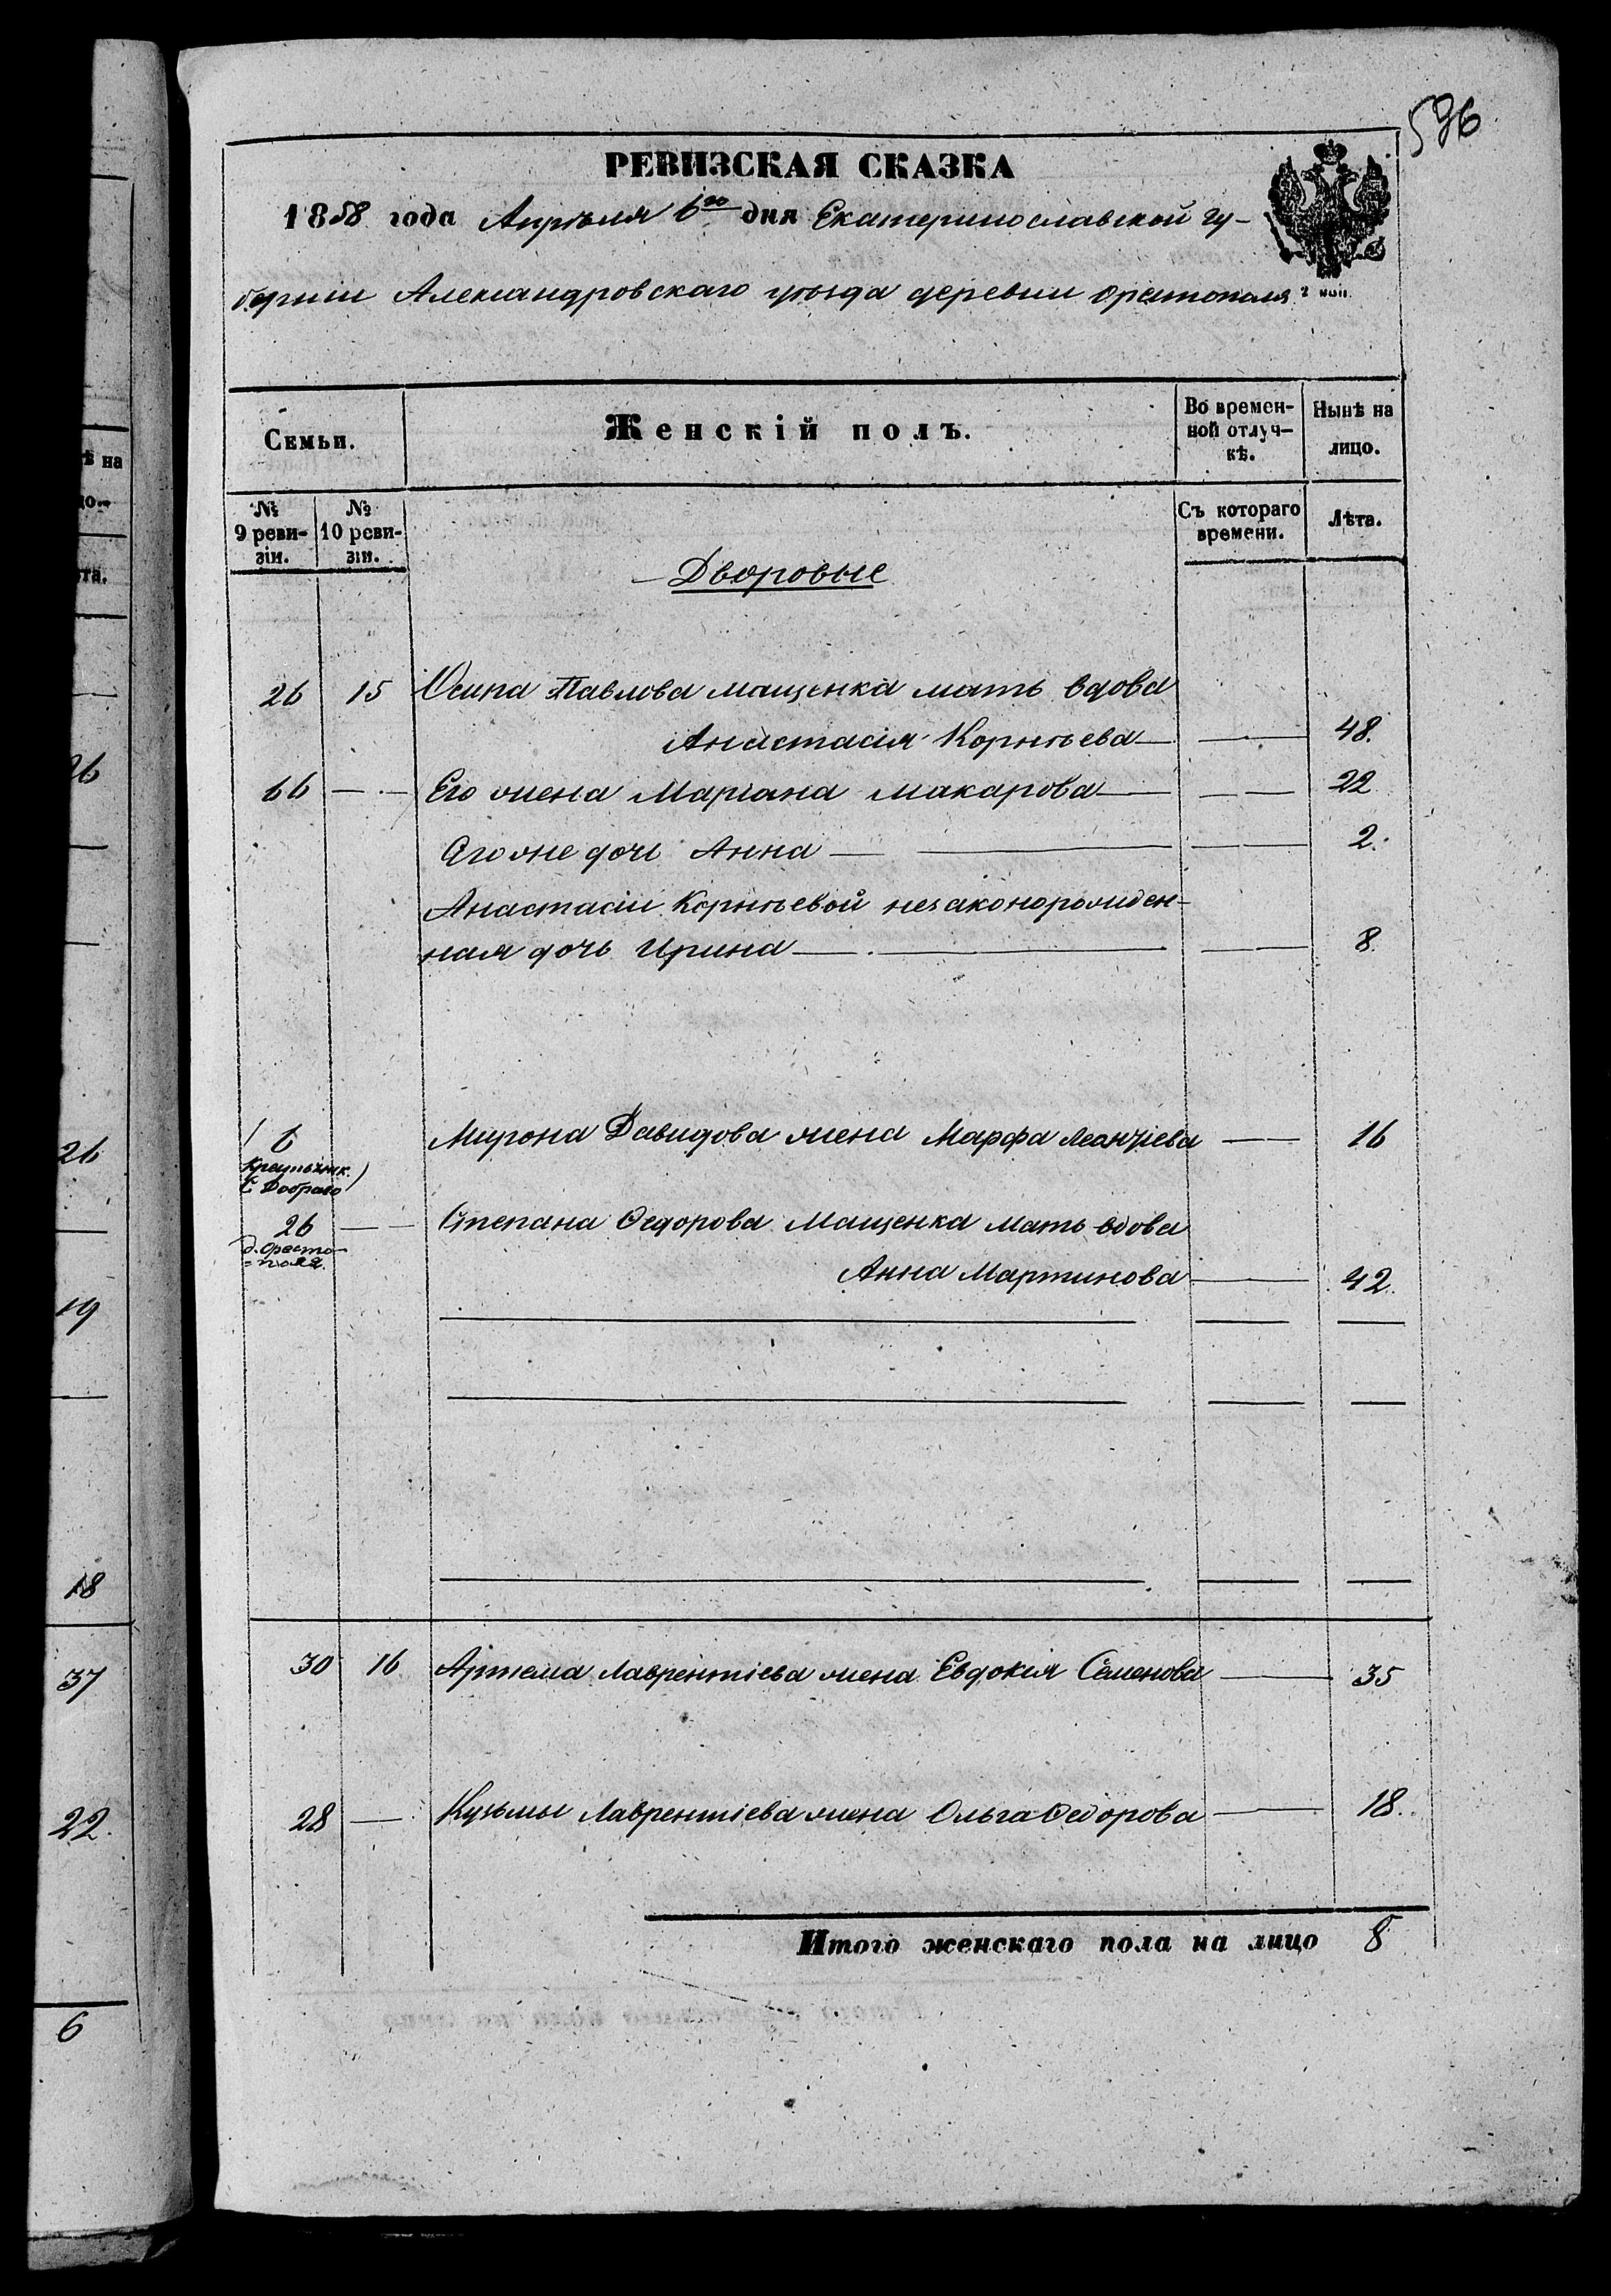 536
РЕВИЗСКАЯ СКАЗКА
1858 года Апрѣля 6го дня Екатеринославской гу-
берніи Александровскаго уѣзда деревни Орестополя
Семьи.
Женскій полъ.
Во времен-
ной отлуч-
кѣ.
Нынѣ на
лицо.
№
9 реви-
зіи.
№
10 реви-
зіи.
Съ котораго
времени.
Лѣта.
Дворовые
26 15 Осипа Павлова Мащенка мать вдова
Анастасія Корнѣева 48.
66 Его жена Маріана Макарова 22
Его же дочь Анна 2.
Анастасіи Корнѣевой незаконорожден-
ная дочь Ирина 8.
6 Мирона Давидова жена Марфа Леонтіева 16
С Добраго)
26 Степана Ѳедорова Мащенка мать вдова
д. Оресто-
=поля.
Анна Мартинова 42.
30 16 Артема Лаврентіева жена Евдокія Семенова 35
28 Кузьмы Лаврентіева жена Ольга Ѳедорова 18.
Итого женскаго пола на лицо 8
ѣ на
та.
26
26
19
18
37
22.
6